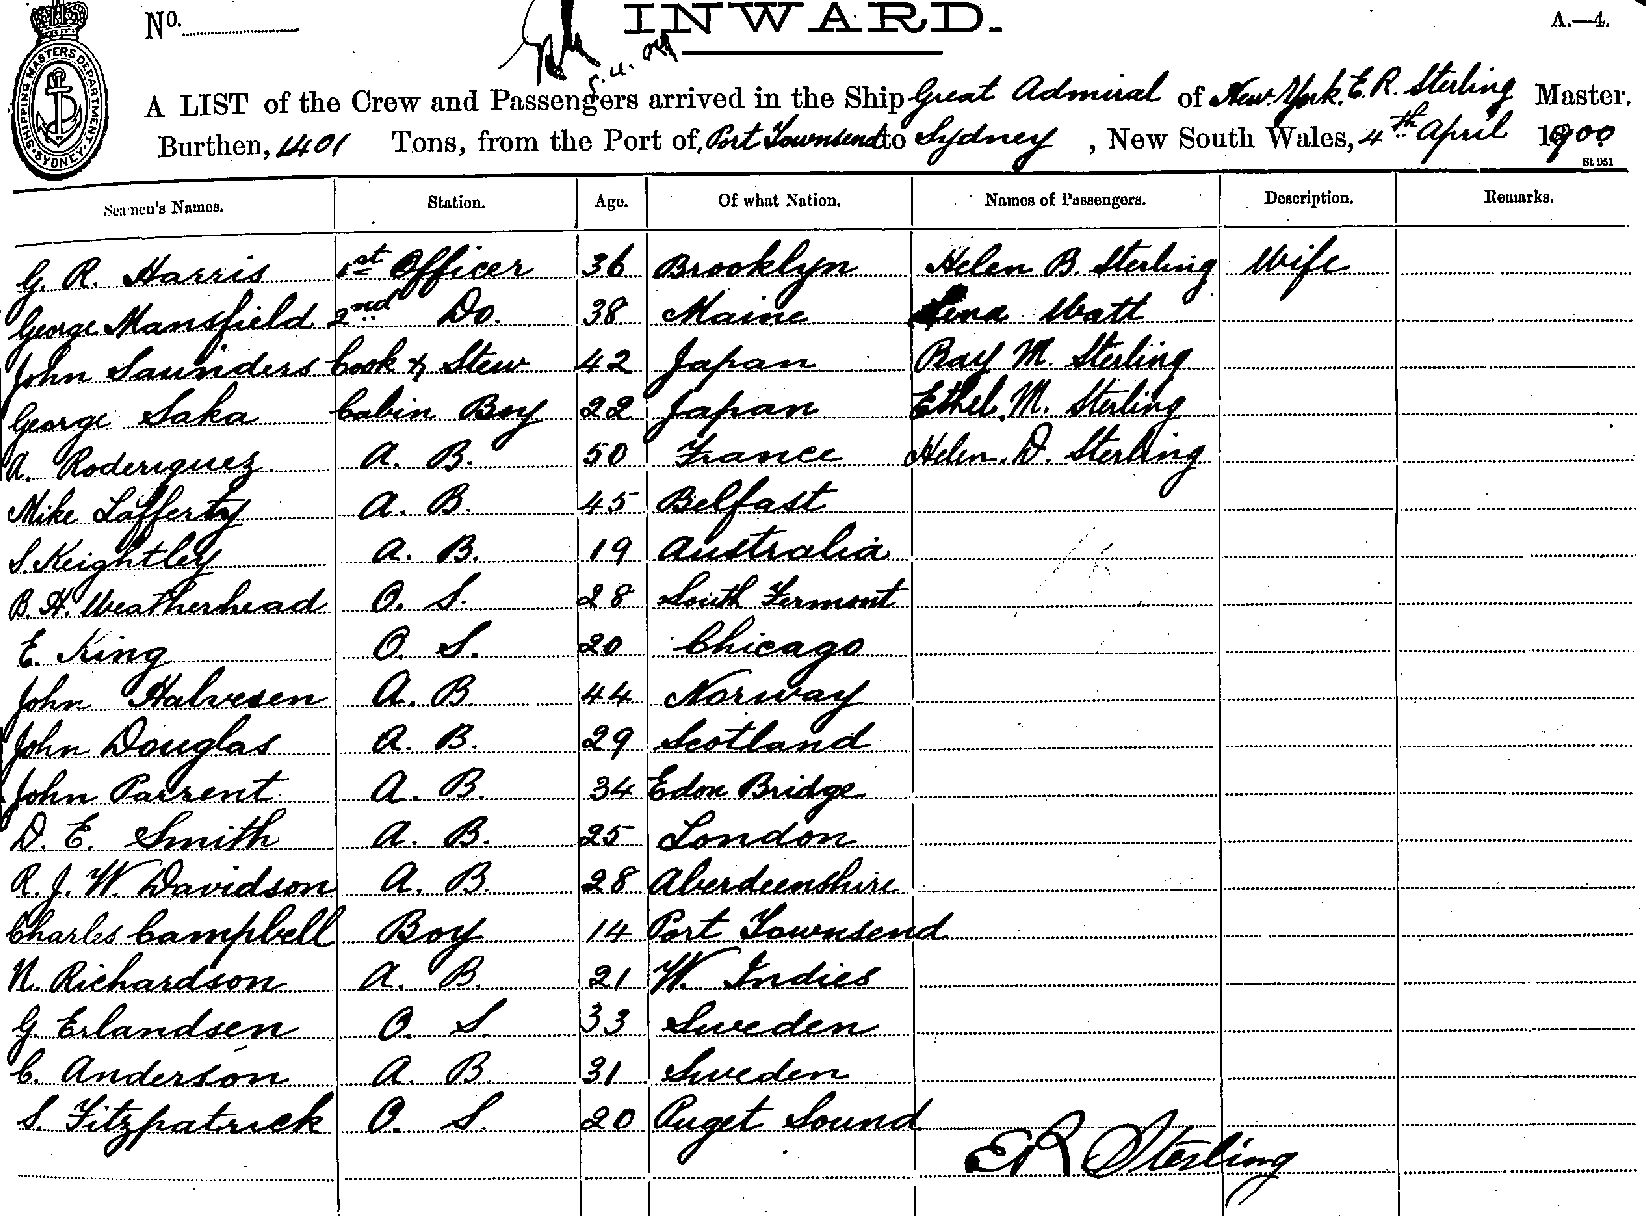 No.
INWARD.
A.—4.
A LIST of the Crew and Passengers arrived in the Ship Great Admiral of New York. E. R. Sterling Master,
Burthen, 1401 Tons, from the Port of Port Townsend to Sydney, New South Wales, 4th April 1900
St 951
SHIPPING MASTERS DEPARTMENT SYDNEY
Seamen's Names. Station. Age. Of what Nation. Names of Passengers. Description. Remarks.
G. R. Harris 1st Officer 36 Brooklyn Helen B Sterling Wife
George Mansfield 2nd Do. 38 Maine Lena Watt
John Saunders Cook & Stew 42 Japan Ray M. Sterling
George Saka Cabin Boy 22 Japan Ethel M. Sterling
A. Roderiquez A. B. 50 France Helen D. Sterling
Mike Lafferty A. B. 45 Belfast
S. Keightley A. B. 19 Australia
B. H. Weatherhead O. S. 28 South Fermont
E. King O. S. 20 Chicago
John Halvesen A. B 44 Norway
John Douglas A. B. 29 Scotland
John Parrent A. B. 34 Edon Bridge
D. E. Smith A. B. 25 London
R. J. W. Davidson A. B 28 Aberdeenshire
Charles Campbell Boy 14 Port Townsend
N. Richardson A. B. 21 W. Indies
G Erlandsen O. S 33 Sweden
C. Anderson A. B. 31 Sweden
S. Fitzpatrick O. S. 20 Puget Sound
E R Sterling